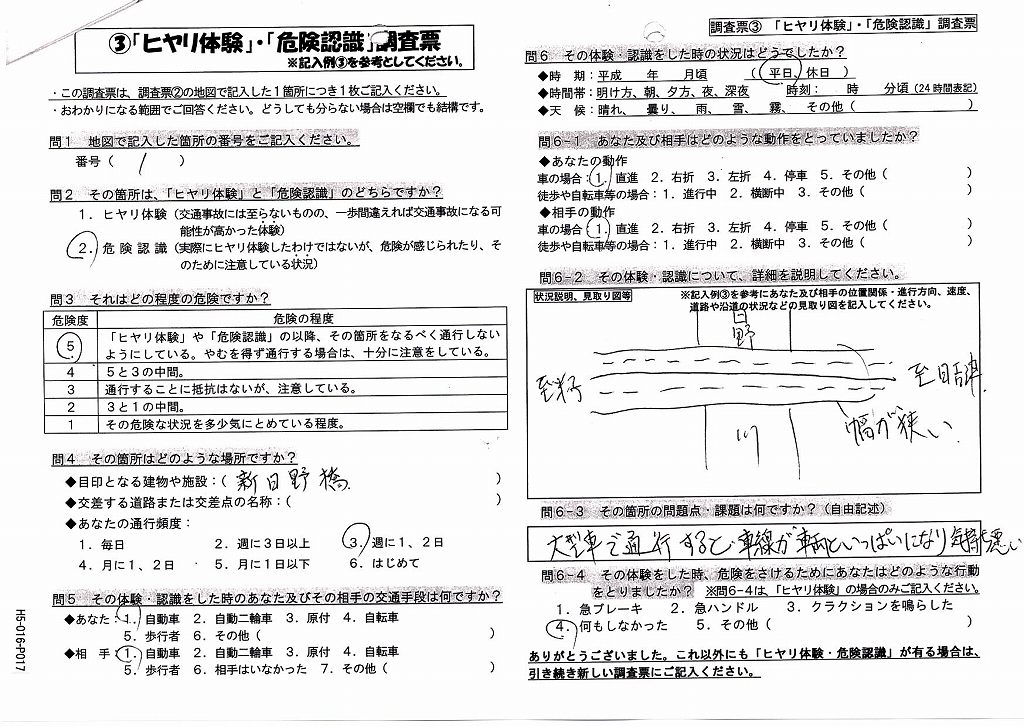 ③「ヒヤリ体験」・「危険認識」調査票
※記入例③を参考としてください。
・この調査票は、調査票②の地図で記入した1箇所につき1枚ご記入ください。
・おわかりになる範囲でご回答ください。どうしても分らない場合は空欄でも結構です。
問1 地図で記入した箇所の番号をご記入ください。
番号（ 1 ）
問2 その箇所は、「ヒヤリ体験」と「危険認識」のどちらですか？
1．ヒヤリ体験（交通事故には至らないものの、一歩間違えれば交通事故になる可
能性が高かった体験）
2．危険認識（実際にヒヤリ体験したわけではないが、危険が感じられたり、そ
のために注意している状況）
問3 それはどの程度の危険ですか？
危険度 危険の程度
5 「ヒヤリ体験」や「危険認識」の以降、その箇所をなるべく通行しない
ようにしている。やむを得ず通行する場合は、十分に注意をしている。
4 5と3の中間。
3 通行することに抵抗はないが、注意している。
2 3と1の中間。
1 その危険な状況を多少気にとめている程度。
問4 その箇所はどのような場所ですか？
◆目印となる建物や施設：（ 新日野橋 ）
◆交差する道路または交差点の名称：（ ）
◆あなたの通行頻度：
1．毎日 2．週に3日以上 3．週に1、2日
4．月に1、2日 5．月に1日以下 6．はじめて
問5 その体験・認識をした時のあなた及びその相手の交通手段は何ですか？
◆あなた：1．自動車 2．自動二輪車 3．原付 4．自転車
5．歩行者 6．その他（ ）
◆相 手：1．自動車 2．自動二輪車 3．原付 4．自転車
5．歩行者 6．相手はいなかった 7．その他（ ）
H5-016-P017
調査票③ 「ヒヤリ体験」・「危険認識」調査票
問6 その体験・認識をした時の状況はどうでしたか？
◆時 期：平成 年 月頃 （平日、休日）
◆時間帯：明け方、朝、夕方、夜、深夜 時刻： 時 分頃（24時間表記）
◆天 候：晴れ、曇り、雨、雪、霧、その他（ ）
問6-1 あなた及び相手はどのような動作をとっていましたか？
◆あなたの動作
車の場合：1．直進 2．右折 3．左折 4．停車 5．その他（ ）
徒歩や自転車等の場合：1．進行中 2．横断中 3．その他（ ）
◆相手の動作
車の場合：1．直進 2．右折 3．左折 4．停車 5．その他（ ）
徒歩や自転車等の場合：1．進行中 2．横断中 3．その他（ ）
問6-2 その体験・認識について、詳細を説明してください。
状況説明、見取り図等 ※記入例③を参考にあなた及び相手の位置関係・進行方向、速度、
道路や沿道の状況などの見取り図を記入してください。
日野
川
幅が狭い。
問6-3 その箇所の問題点・課題は何ですか？（自由記述）
大型車で通行すると車線が車両といっぱいになり気持悪い
問6-4 その体験をした時、危険をさけるためにあなたはどのような行動
をとりましたか？ ※問6-4は、「ヒヤリ体験」の場合のみご記入ください。
1．急ブレーキ 2．急ハンドル 3．クラクションを鳴らした
4．何もしなかった 5．その他（ ）
ありがとうございました。これ以外にも「ヒヤリ体験・危険認識」が有る場合は、
引き続き新しい調査票にご記入ください。